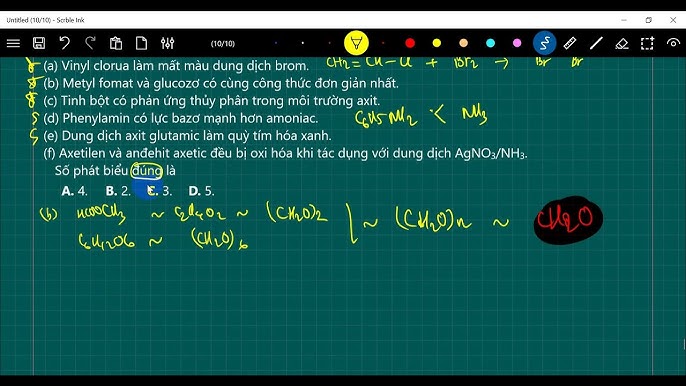 Untitled (10/10) - Scrble Ink
(10/10)
(a) Vinyl clorua làm mất màu dung dịch brom. CH2=CH-Cl + Br2 → Br Br
(b) Metyl fomat và glucozơ có cùng công thức đơn giản nhất.
(c) Tinh bột có phản ứng thủy phân trong môi trường axit.
(d) Phenylamin có lực bazơ mạnh hơn amoniac. C6H5NH2 < NH3
(e) Dung dịch axit glutamic làm quỳ tím hóa xanh.
(f) Axetilen và anđehit axetic đều bị oxi hóa khi tác dụng với dung dịch AgNO3/NH3.
Số phát biểu đúng là
A. 4. B. 2. C. 3. D. 5.
(b) HCOOCH3 ~ C2H4O2 ~ (CH2O)2 | ~ (CH2O)n ~ CH2O
C6H12O6 ~ (CH2O)6